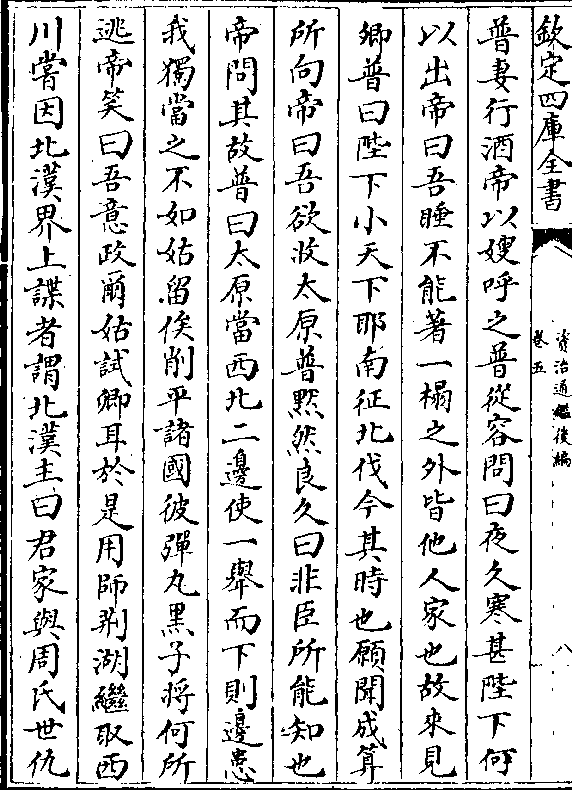 欽定四庫全書
資治通鑑後編
卷五
八
普妻行酒帝以嫂呼之普從容問曰夜久寒甚陛下何
以出帝曰吾睡不能著一榻之外皆他人家也故來見
卿普曰陛下小天下耶南征北伐今其時也願聞成算
所向帝曰吾欲收太原普黙然良久曰非臣所能知也
帝問其故普曰太原當西北二邊使一舉而下則邊患
我獨當之不如姑留俟削平諸國彼彈丸黒子將何所
逃帝笑曰吾意政爾姑試卿耳於是用師荆湖繼取西
川嘗因北漢界上諜者謂北漢主曰君家與周氏世仇